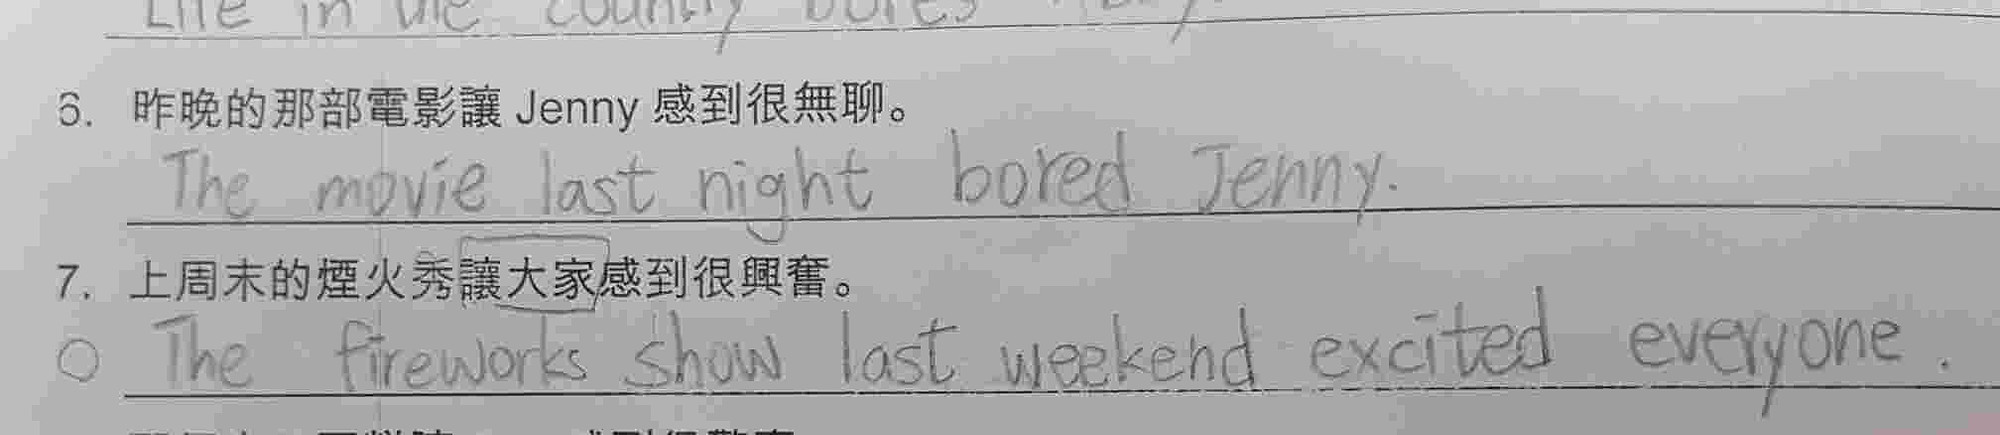 Life in the country bores
6. 昨晚的那部電影讓 Jenny 感到很無聊。
The movie last night bored Jenny.
7. 上周末的煙火秀讓大家感到很興奮。
The fireworks show last weekend excited everyone.